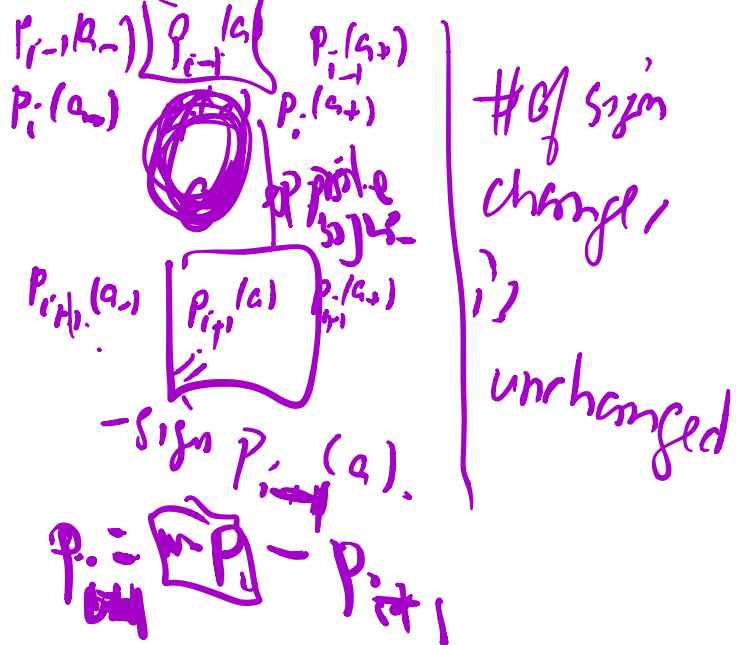 p_{i-1}(a_-) p_{i-1}(a) p_{i-1}(a_+)
p_i(a_-) p_i(a_+)
opposite
signs
p_{i+1}(a_-) p_{i+1}(a) p_{i+1}(a_+)
-sign p_{i-1}(a).
# of sign
change,
is
unchanged